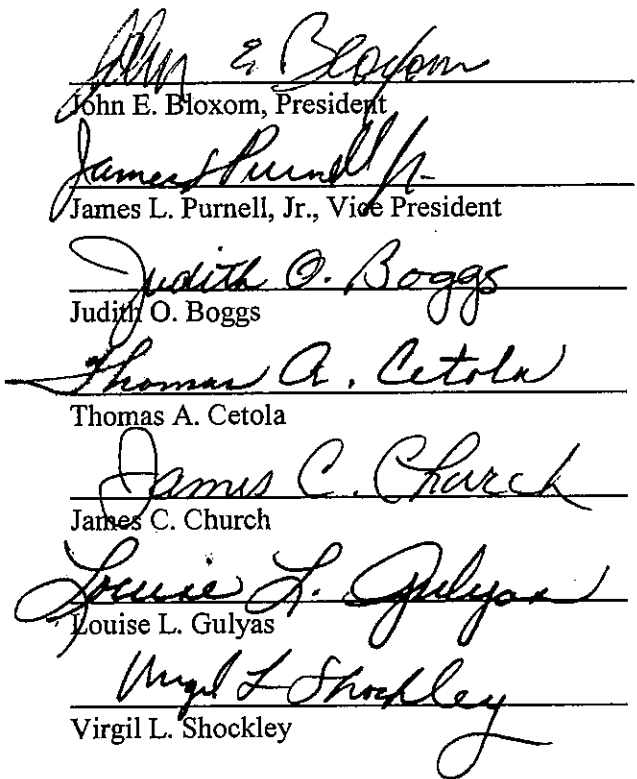 John E Bloxom
John E. Bloxom, President
James L Purnell Jr.
James L. Purnell, Jr., Vice President
Judith O. Boggs
Judith O. Boggs
Thomas A. Cetola
Thomas A. Cetola
James C. Church
James C. Church
Louise L. Gulyas
Louise L. Gulyas
Virgil L Shockley
Virgil L. Shockley